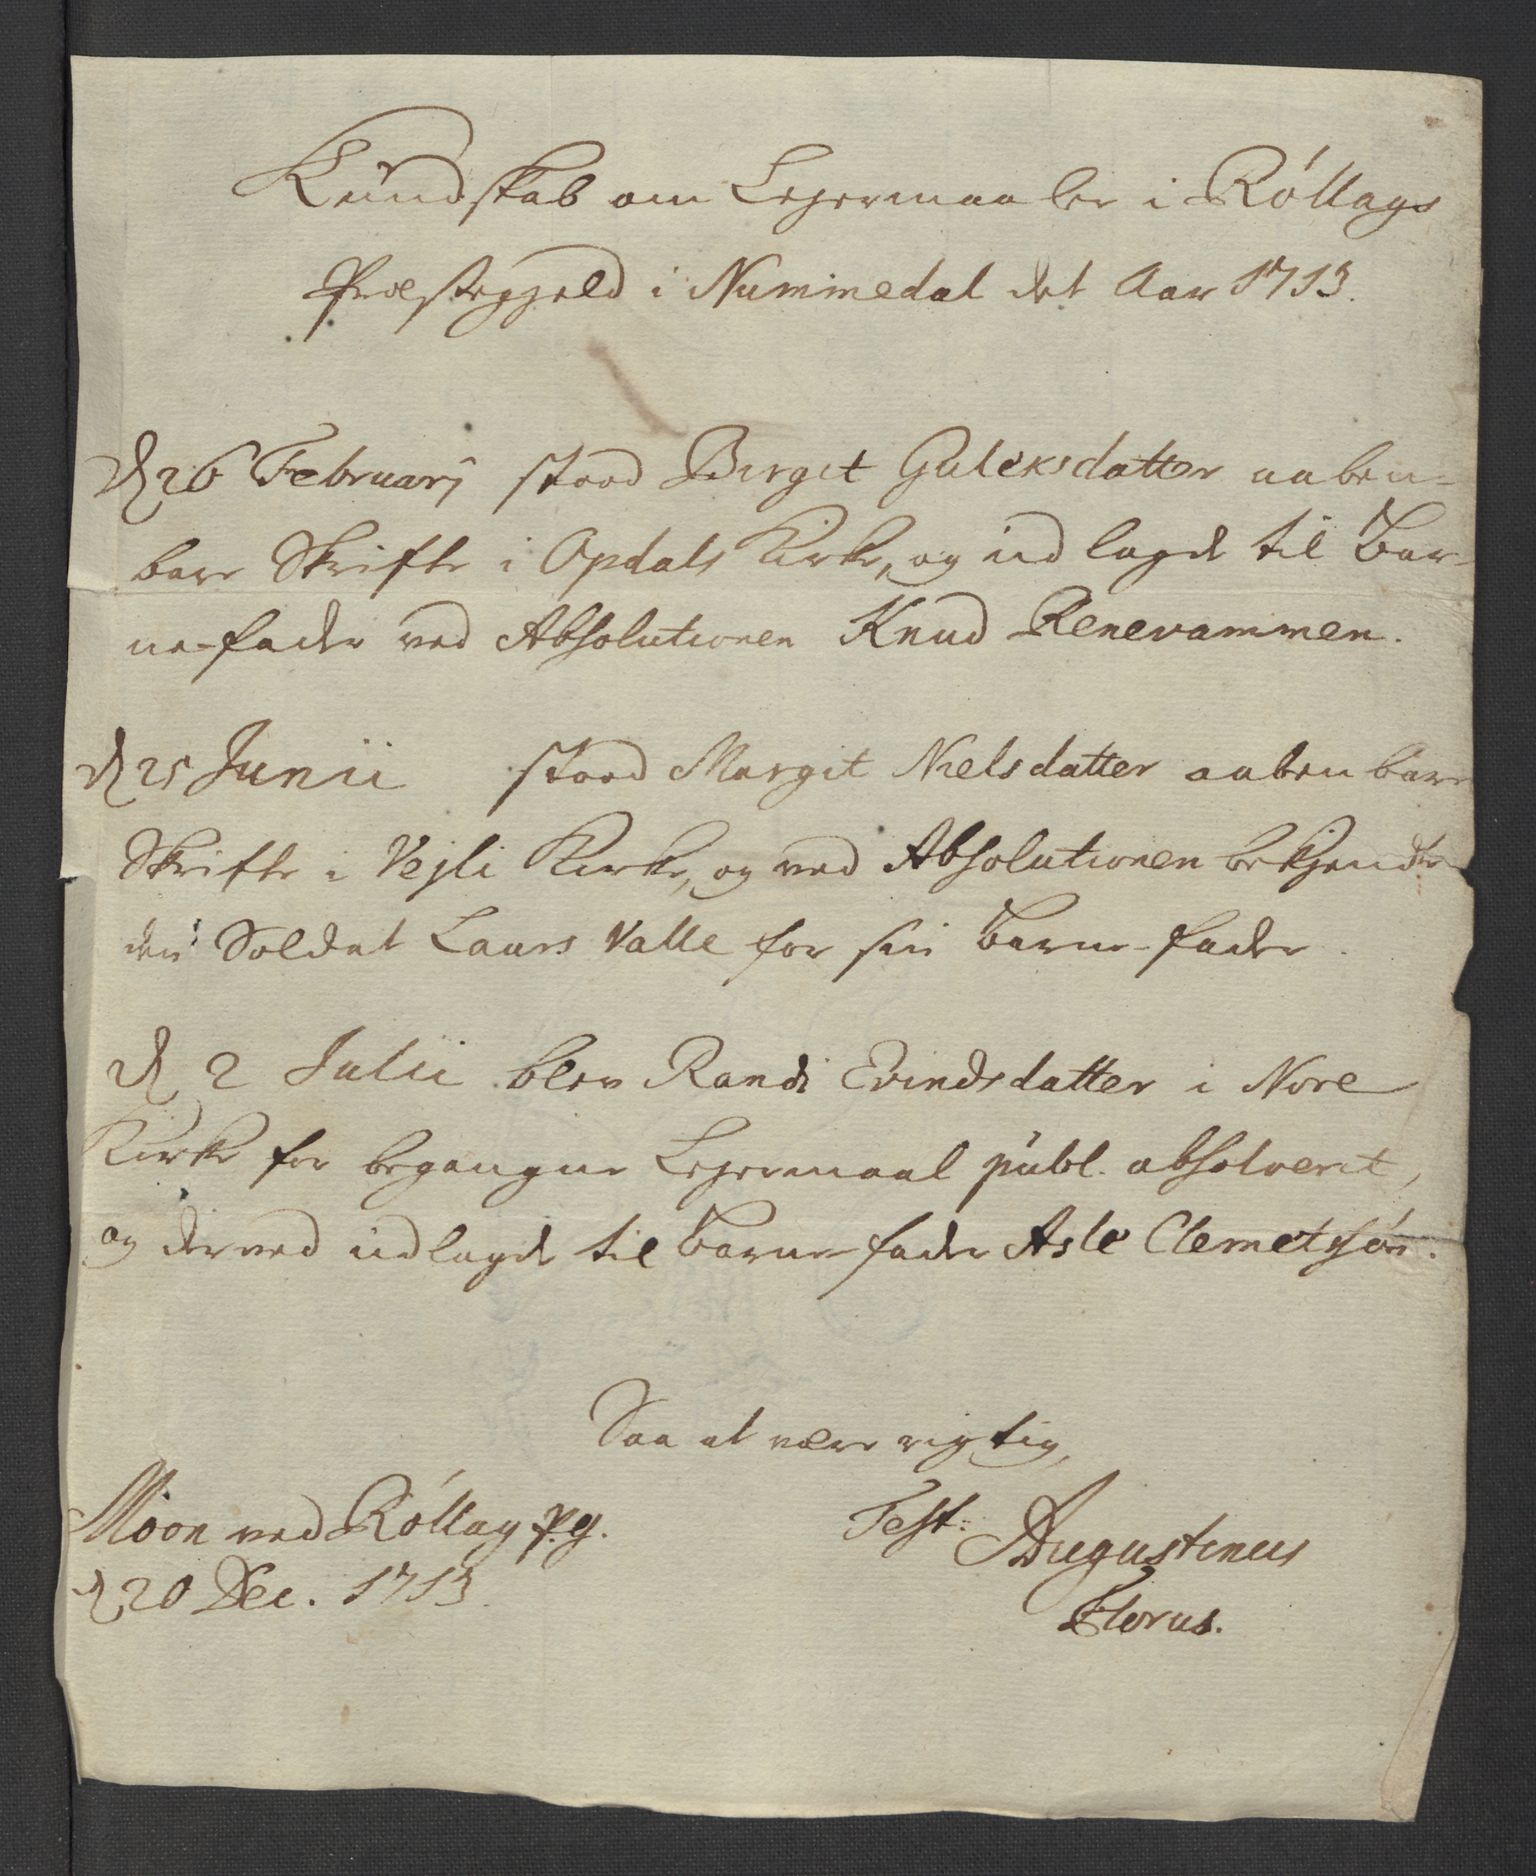 Kundskab om Lejermaaler i Róllags
Præstegjeld i Nummedal det Aar 1713.
d 26 Februarij stood Birgit Guleksdatter aaben-
bare Skrifte i Opdals Kirke, og udlagde til Bar-
ne-fader ved Absolutionen Knud Renevammen.
d 25 Junii stood Margit Nielsdatter aabenbare
Skrifte i Vejli Kirke, og ved Absolutionen bekjendte
den Soldat Laurs Valle for sin Barne-fader.
d 2 Julii blev Randi Evindsdatter i Nore
Kirke for begangne Lejermaal publ. absolverit,
og derved udlagde til Barnefader Asle Clemetsøn.
Saa at være rigtig,
Moon ved Róllag p.g.
Test: Augustinus
d 20 Dec. 1713.
Florus.